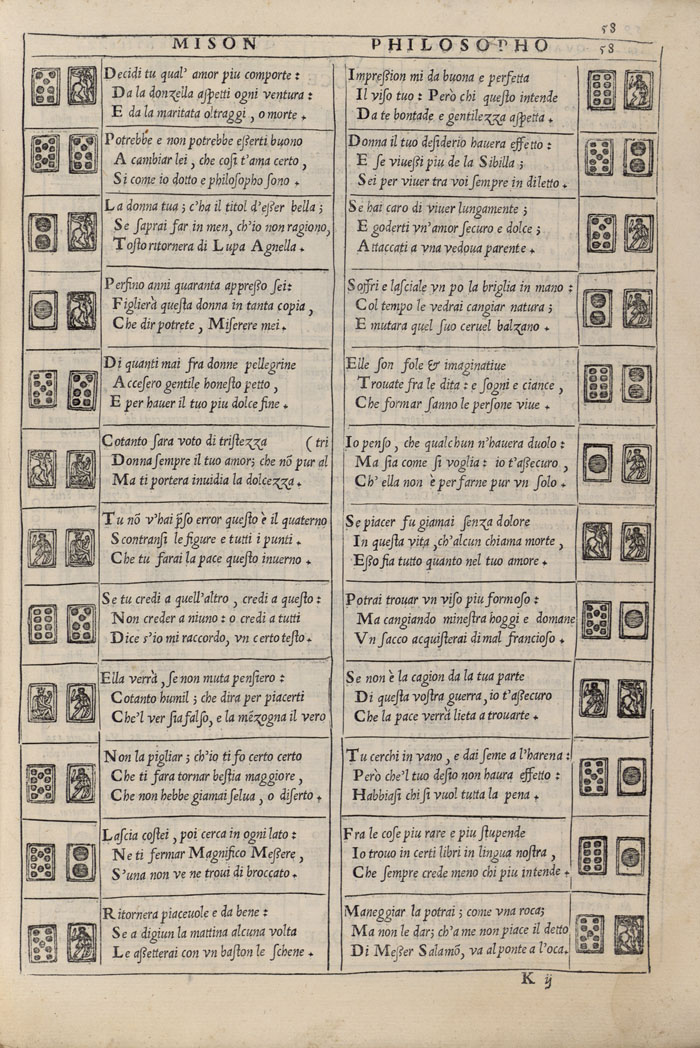 58
MISON PHILOSOPHO 58
Decidi tu qual' amor piu comporte :
Da la donzella aſpetti ogni ventura :
E da la maritata oltraggi , o morte .
Potrebbe e non potrebbe eſſerti buono
A cambiar lei , che coſi t'ama certo ,
Si come io dotto e philoſopho ſono .
La donna tua ; c'ha il titol d'eſſer bella ;
Se ſaprai far in men, ch'io non ragiono,
Toſto ritornera di Lupa Agnella .
Perfino anni quaranta appreſſo ſei :
Figlierà queſta donna in tanta copia ,
Che dir potrete , Miſerere mei .
Di quanti mai fra donne pellegrine
Acceſero gentile honeſto petto ,
E per hauer il tuo piu dolce fine .
Cotanto ſara voto di triſtezza (tri
Donna ſempre il tuo amor; che nō pur al
Ma ti portera inuidia la dolcezza .
Tu nō v'hai p̄ſo error queſto è il quaterno
Scontranſi le figure e tutti i punti .
Che tu farai la pace queſto inuerno .
Se tu credi a quell'altro , credi a queſto :
Non creder a niuno : o credi a tutti
Dice s'io mi raccordo, vn certo teſto .
Ella verrà , ſe non muta penſiero :
Cotanto humil ; che dira per piacerti
Che'l ver ſia falſo, e la mēzogna il vero
Non la pigliar ; ch'io ti fo certo certo
Che ti fara tornar beſtia maggiore ,
Che non hebbe giamai ſelua , o diſerto .
Laſcia coſtei , poi cerca in ogni lato :
Ne ti fermar Magnifico Meſſere ,
S'una non ve ne troui di broccato .
Ritornera piaceuole e da bene :
Se a digiun la mattina alcuna volta
Le aſſetterai con vn baſton le ſchene .
Impreſſion mi da buona e perfetta
Il viſo tuo : Però chi queſto intende
Da te bontade e gentilezza aſpetta .
Donna il tuo deſiderio hauera effetto :
E ſe viueſſi piu de la Sibilla ;
Sei per viuer tra voi ſempre in diletto .
Se hai caro di viuer lungamente ;
E goderti vn'amor ſecuro e dolce ;
Attaccati a vna vedoua parente .
Soffri e laſciale vn po la briglia in mano :
Col tempo le vedrai cangiar natura ;
E mutara quel ſuo ceruel balzano .
Elle ſon fole & imaginatiue
Trouate fra le dita : e ſogni e ciance ,
Che formar ſanno le perſone viue .
Io penſo , che qualchun n'hauera duolo :
Ma ſia come ſi voglia : io t'aſſecuro ,
Ch' ella non è per farne pur vn ſolo .
Se piacer fu giamai ſenza dolore
In queſta vita ,ch'alcun chiama morte ,
Eſſo fia tutto quanto nel tuo amore .
Potrai trouar vn viſo piu formoſo :
Ma cangiando mineſtra hoggi e domane
Vn ſacco acquiſterai di mal francioſo .
Se non è la cagion da la tua parte
Di queſta voſtra guerra, io t'aſſecuro
Che la pace verrà lieta a trouarte .
Tu cerchi in vano , e dai ſeme a l'harena :
Però che'l tuo deſio non haura effetto :
Habbiaſi chi ſi vuol tutta la pena .
Fra le coſe piu rare e piu ſtupende
Io trouo in certi libri in lingua noſtra ,
Che ſempre crede meno chi piu intende .
Maneggiar la potrai ; come vna roca;
Ma non le dar; ch'a me non piace il detto
Di Meſſer Salamō, va al ponte a l'oca.
K ij